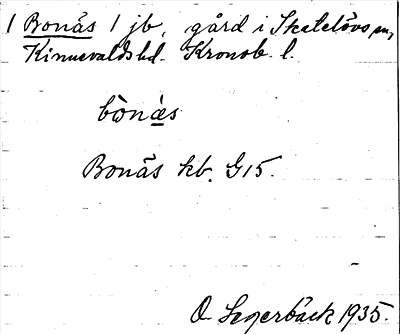 1 Bonäs 1 jb, gård i Skatelövs sn,
Kinnevalds hd. Kronob. l.
bònä̀s
Bonäs kb. G15.
O. Segerbäck 1935.